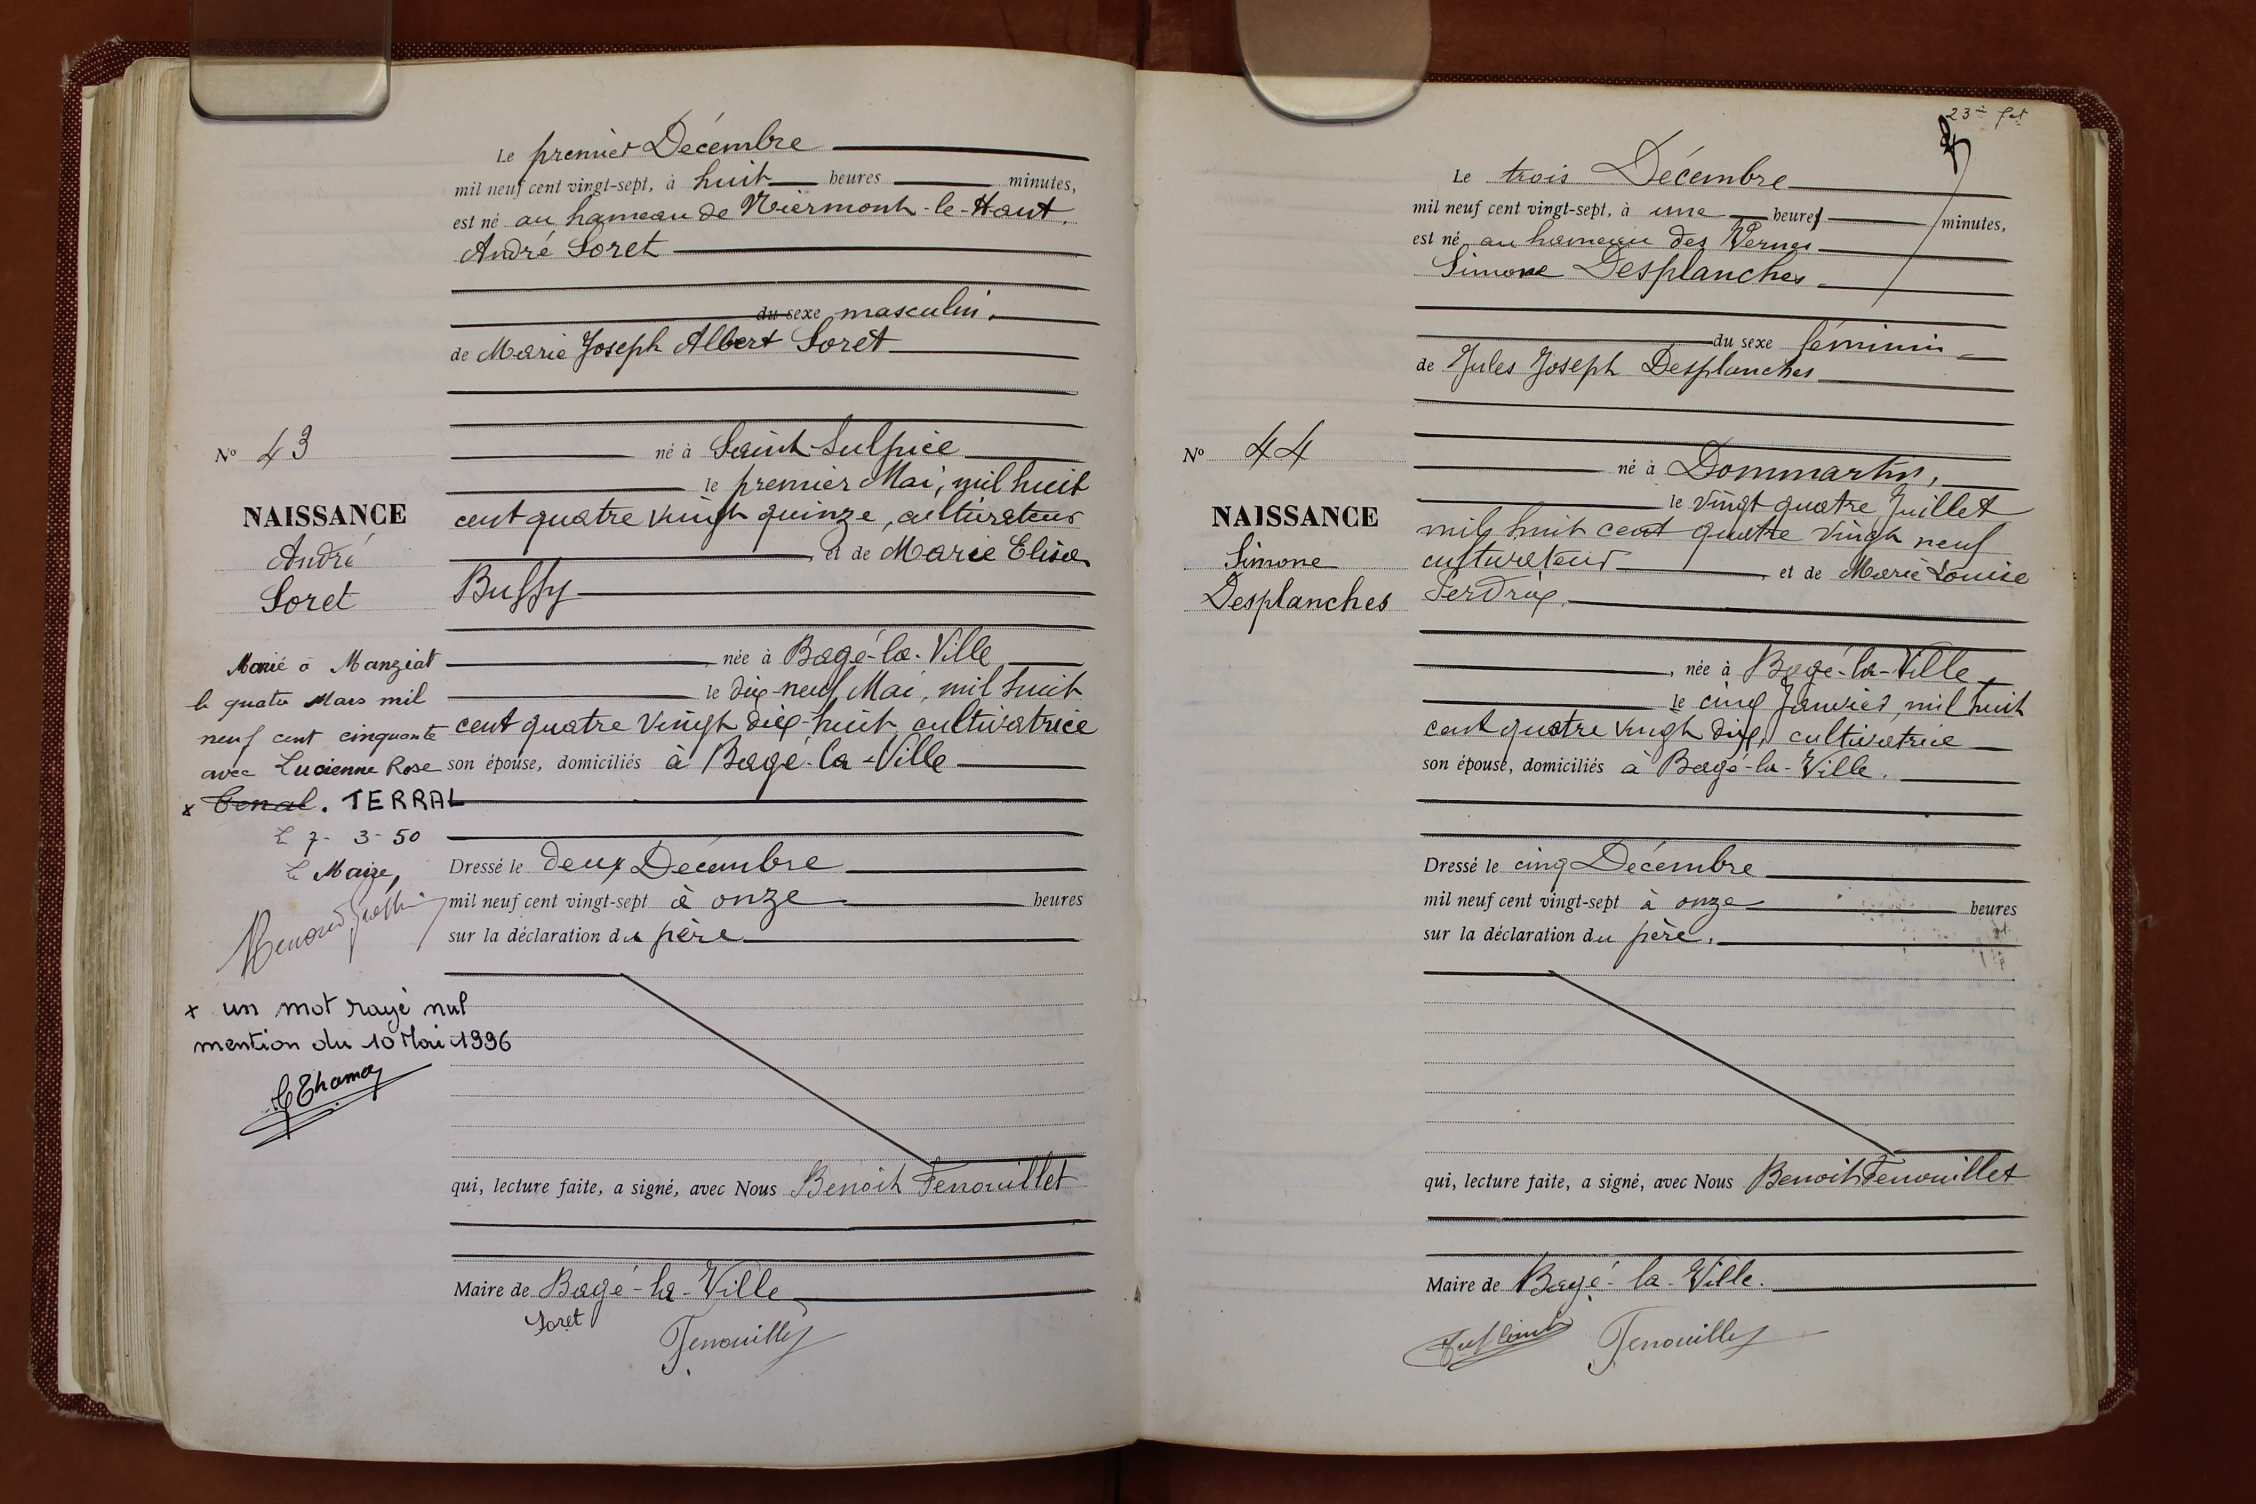 Le premier Décembre
mil neuf cent vingt-sept, à huit heures minutes,
est né au hameau de Niermont-le-Haut,
André Loret
du sexe masculin.
de Marie Joseph Albert Loret
né à Saint-Sulpice
le premier Mai, mil huit
cent quatre vingt quinze, cultivateur
et de Marie Elisa
Buffy
née à Bagé-la-Ville
le dix-neuf Mai, mil huit
cent quatre vingt dix-huit, cultivatrice
son épouse, domiciliés à Bagé-la-Ville
Dressé le deux Décembre
mil neuf cent vingt-sept à onze heures
sur la déclaration du père
qui, lecture faite, a signé, avec Nous Benoît Fenouillet
Maire de Bagé-la-Ville
Loret
Fenouillet
No 43
NAISSANCE
André
Loret
Marié à Manziat
le quatre Mars mil
neuf cent cinquante
avec Lucienne Rose
x . TERRAL
Le 7-3-50
Le Maire,
x un mot rayé nul
mention du 10 Mai 1996
23è fet
Le trois Décembre
mil neuf cent vingt-sept, à une heure minutes,
est né au hameau des Vernes
Simone Desplanches
du sexe féminin
de Jules Joseph Desplanches
né à Dommartin,
le vingt quatre Juillet
mil huit cent quatre vingt neuf
cultivateur et de Marie Louise
Perdrix.
, née à Bagé-la-Ville
le cinq Janvier, mil huit
cent quatre vingt dix, cultivatrice
son épouse, domiciliés à Bagé-la-Ville.
Dressé le cinq Décembre
mil neuf cent vingt-sept à onze heures
sur la déclaration du père.
qui, lecture faite, a signé, avec Nous Benoît Fenouillet
Maire de Bagé-la-Ville.
Fenouillet
No 44
NAISSANCE
Simone
Desplanches